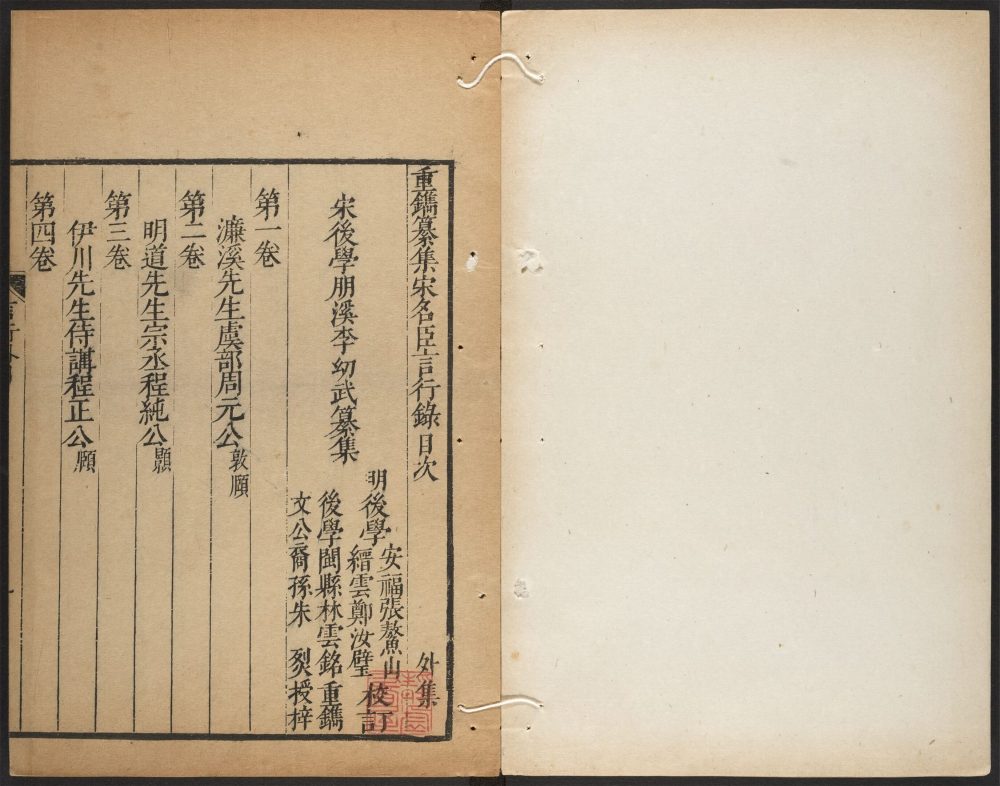 重鐫纂集宋名臣言行錄目次 外集
宋後學朋溪李幼武纂集
明後學 安福張鰲山 縉雲鄭汝璧 校訂
後學閩縣林雲銘重鐫
文公裔孫朱 烈授梓
第一卷
濂溪先生虞部周元公敦頤
第二卷
明道先生宗丞程純公顥
第三卷
伊川先生侍講程正公頤
第四卷